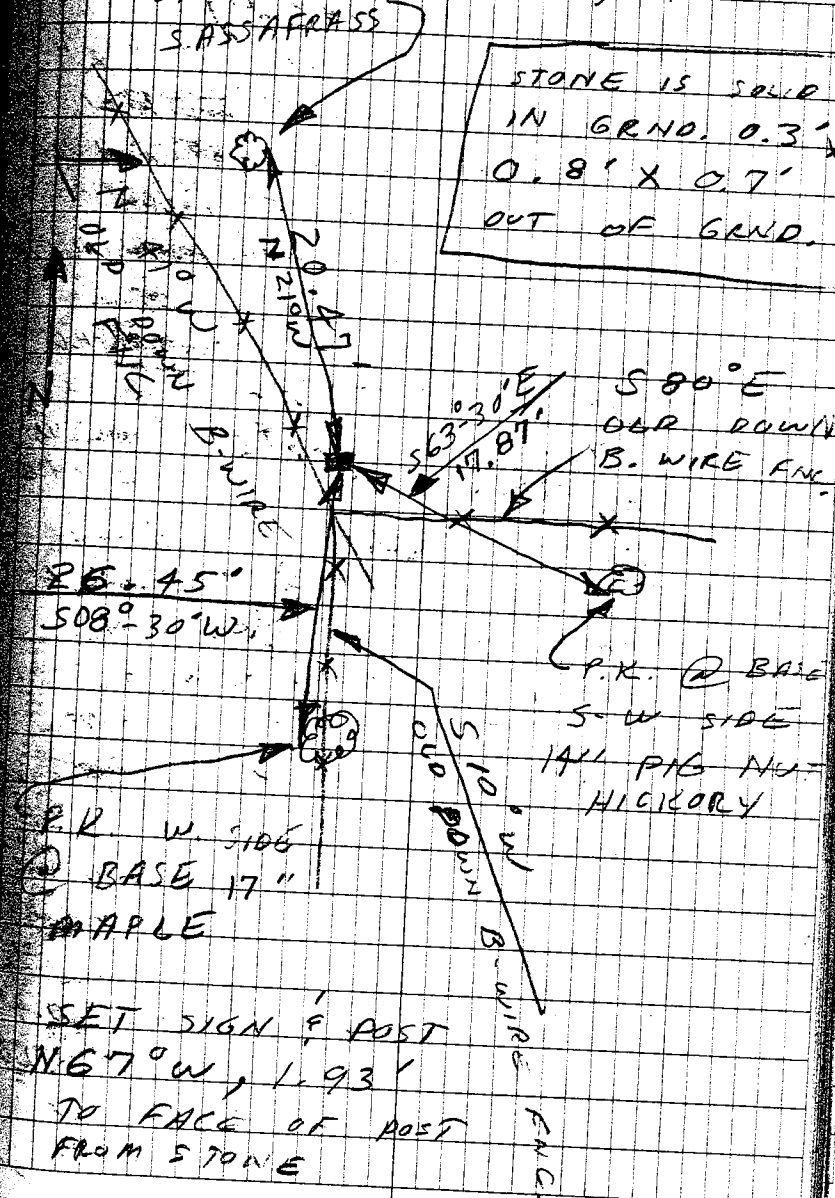 SASSAFRASS
STONE IS SOLID
IN GRND. 0.3'
0.8' X 0.7'
OUT OF GRND.
20.47'
N 21° W
N 41° W
OLD DOWN
B-WIRE
N
S63°-30'E
17.87'
S 80° E
OLD DOWN
B. WIRE FNC.
26.45'
S08°-30'W.
P.K. @ BASE
S-W SIDE
14" PIG NUT
HICKORY
S 10° W
OLD DOWN B-WIRE FNC.
P.K. W. SIDE
@ BASE 17"
MAPLE
SET SIGN & POST
N67°W, 1.93'
TO FACE OF POST
FROM STONE